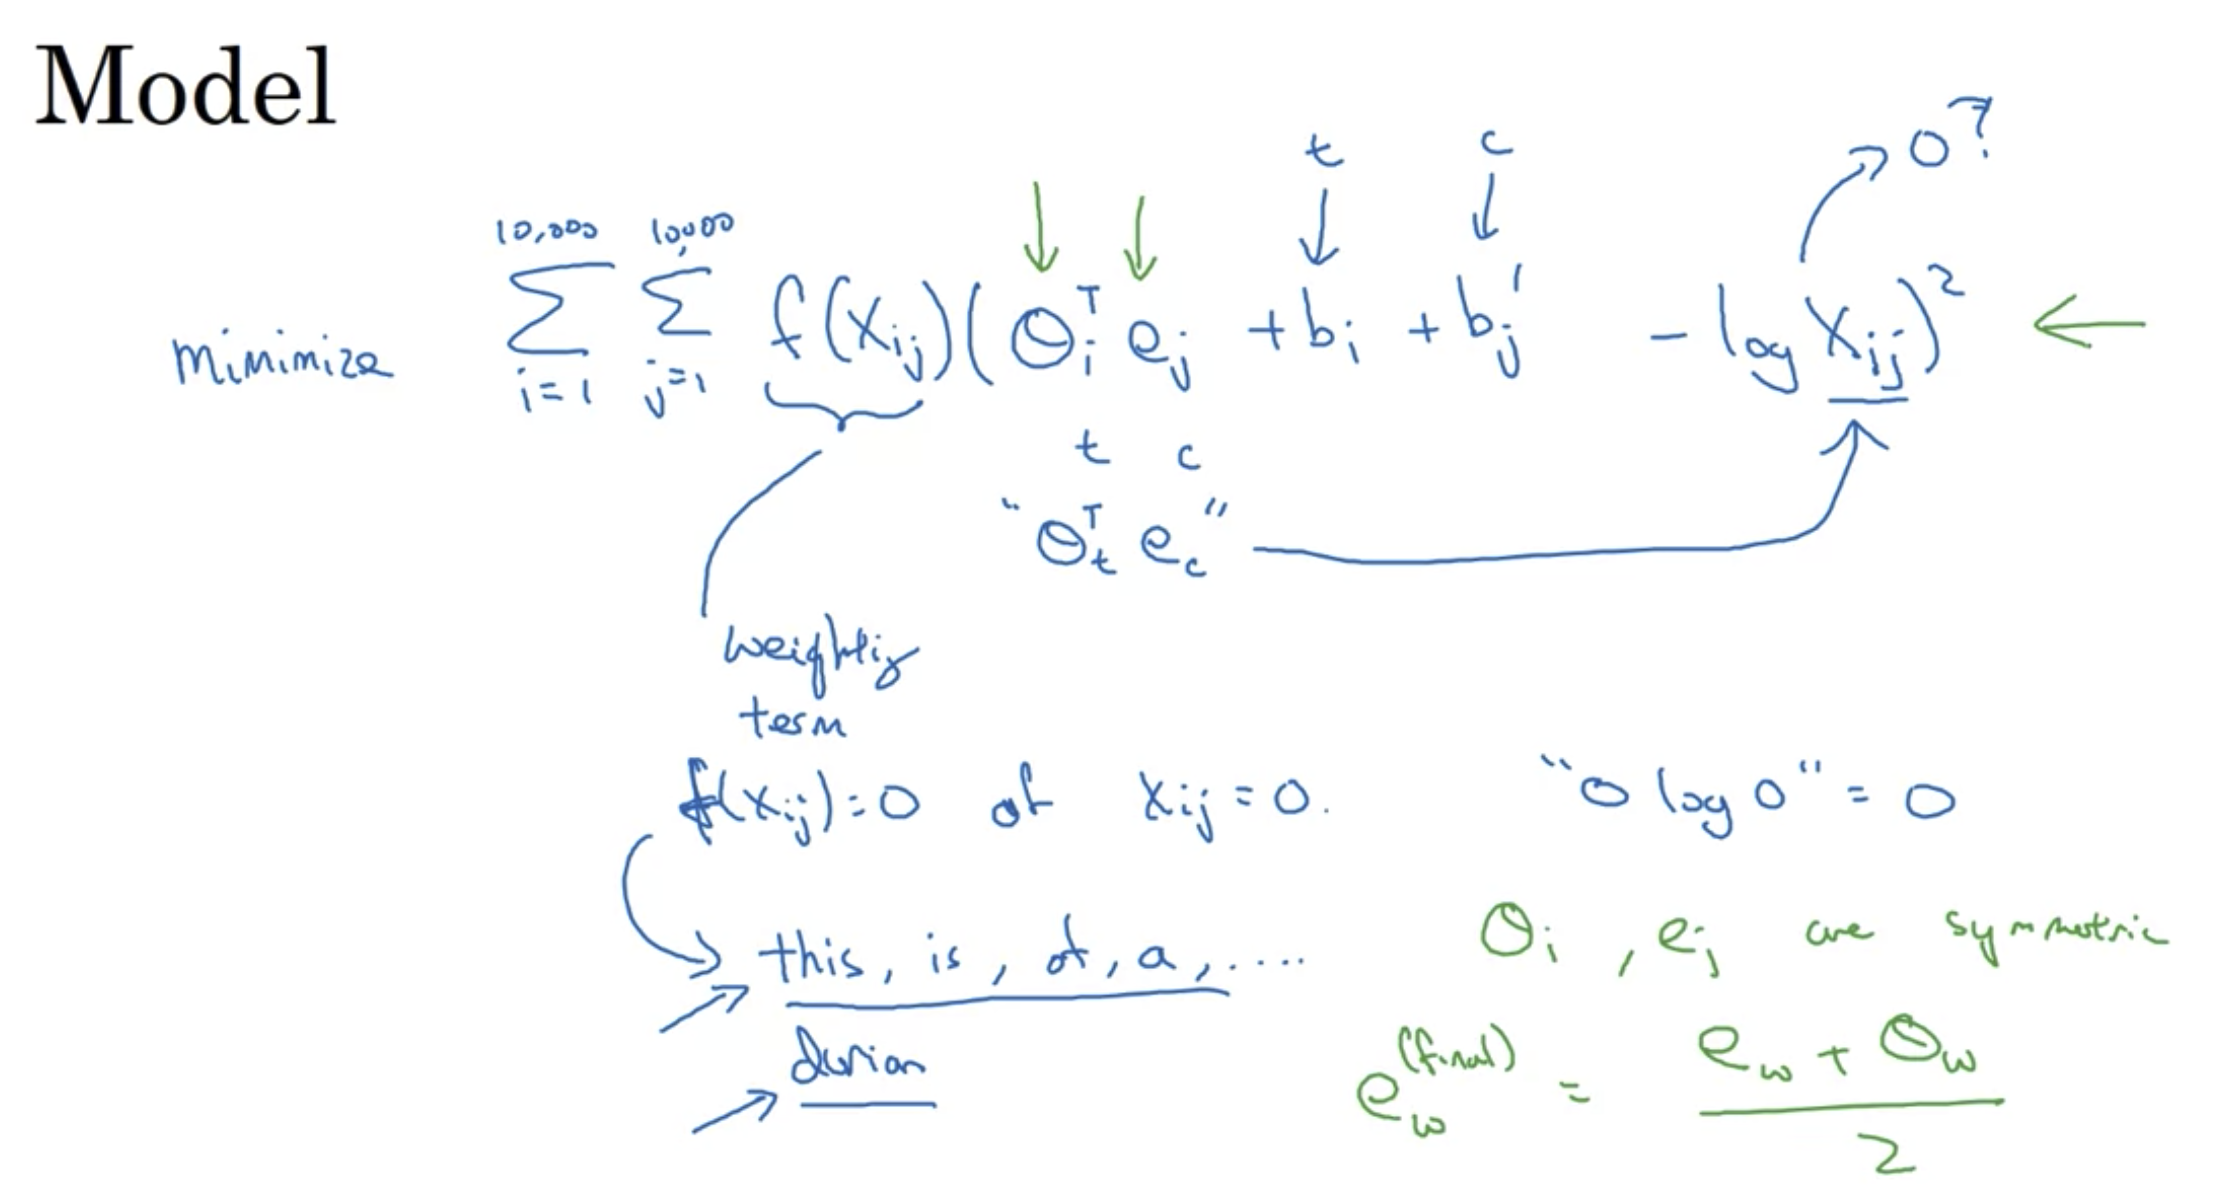 Model
t c 0?
minimize 10,000 Σ i=1 10,000 Σ j=1 f(Xij)(θiᵀ ej + bi + bj' - log Xij)²
t c
"θtᵀ ec"
weighting
term
f(Xij)=0 if Xij=0. "0 log 0" = 0
this, is, of, a, .... θi, ej are symmetric
durian
ew(final) = (ew + θw) / 2